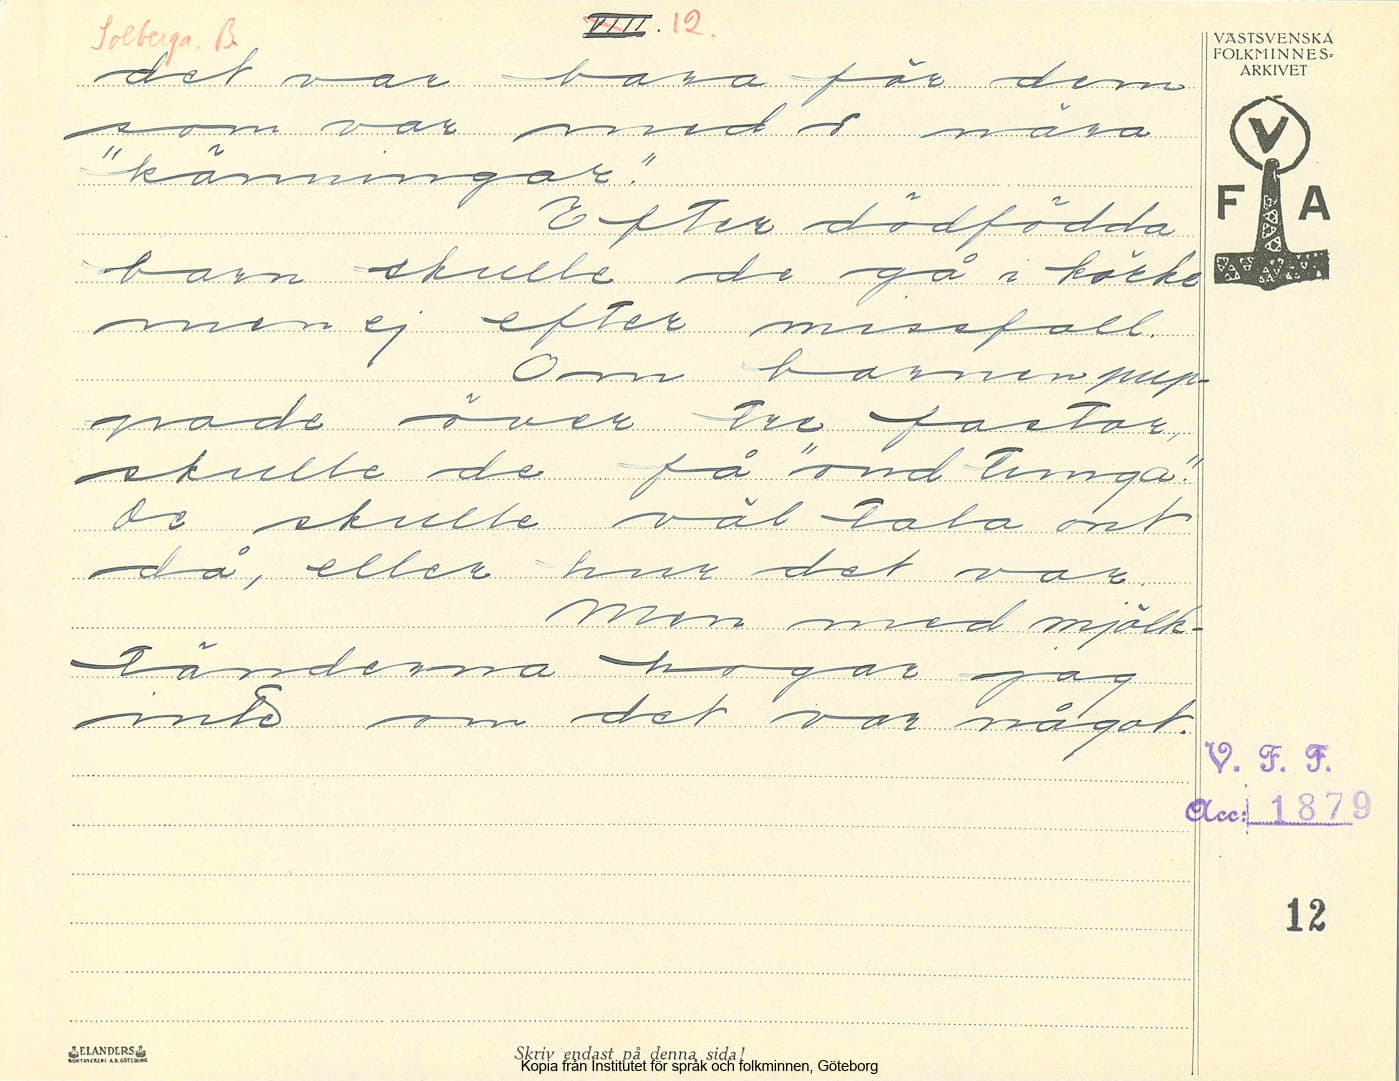 Solberga. B.
VIII. 12.
det var bara för dem
som var med i nära
"känningar."
Efter dödfödda
barn skulle de gå i körke
men ej efter missfall.
Om barnen pup-
pade över tre fastor,
skulle de få "ond tunga".
De skulle väl tala ont
då, eller hur det var.
Men med mjölk-
tänderna hogar jag
inte om det var något.
VÄSTSVENSKA
FOLKMINNES-
ARKIVET
V
F A
V. F. F.
Acc: 1879
12
ELANDERS
BOKTRYCKERI A.B. GÖTEBORG
Skriv endast på denna sida!
Kopia från Institutet för språk och folkminnen, Göteborg